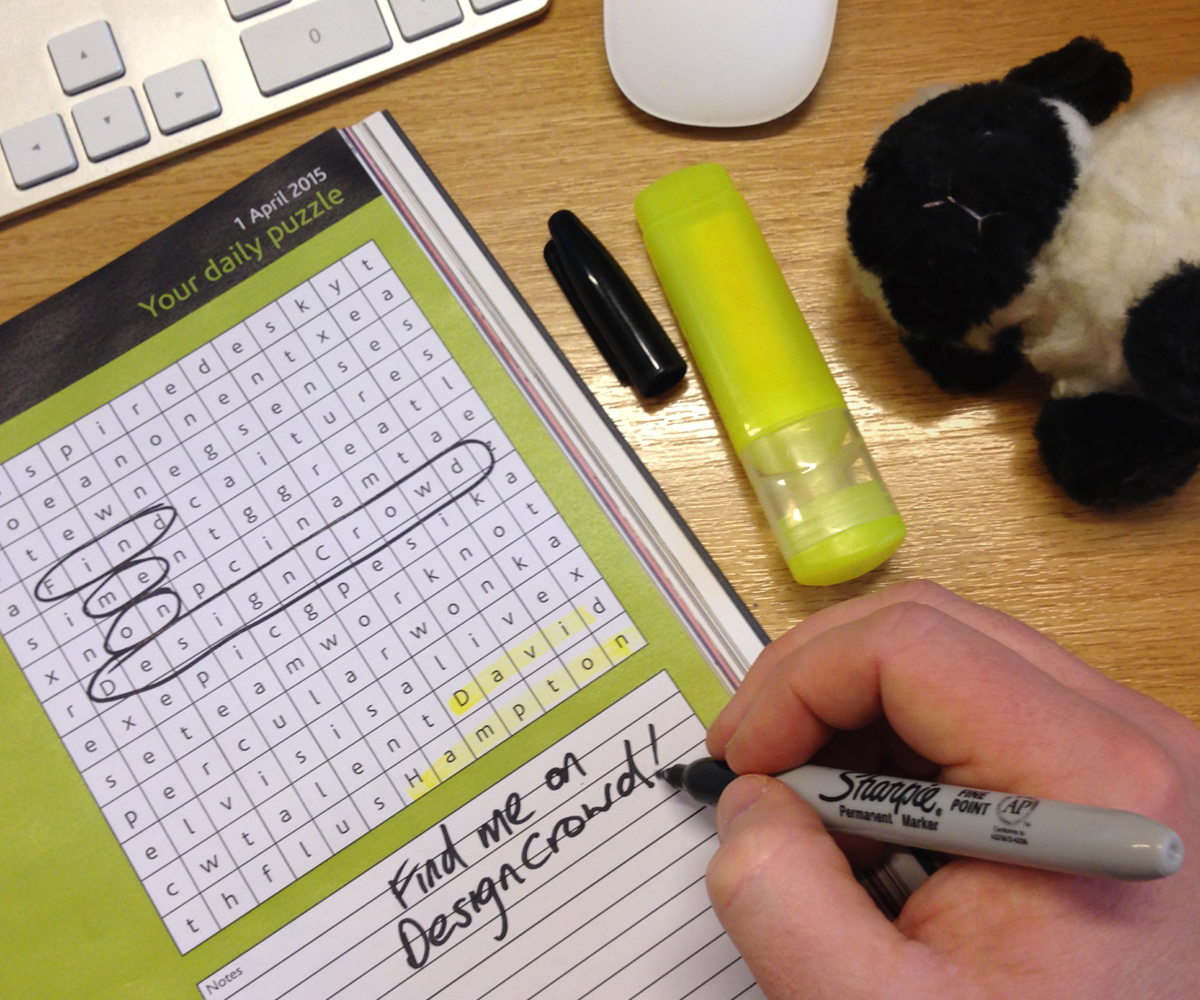 1 April 2015
Your daily puzzle
s p i r e d e s k y t
o e a n o n e n t x e a
t e w n e g s e n s e s
a F i n d c a i t u r e s
s i m e n t g g r e a t l
x n o n p c i n a m t a e
r D e s i g n C r o w d
e x e p i c g p e s i k a
s e t e a m w o r k n o t
p e r c u l a r w o n k a
e l v i s i s a l i v e x
c w t a l e n t D a v i d
t h f l u s H a m p t o n
Find me on
DesignCrowd!
Notes
0
Sharpie®
FINE POINT
Permanent Marker
AP